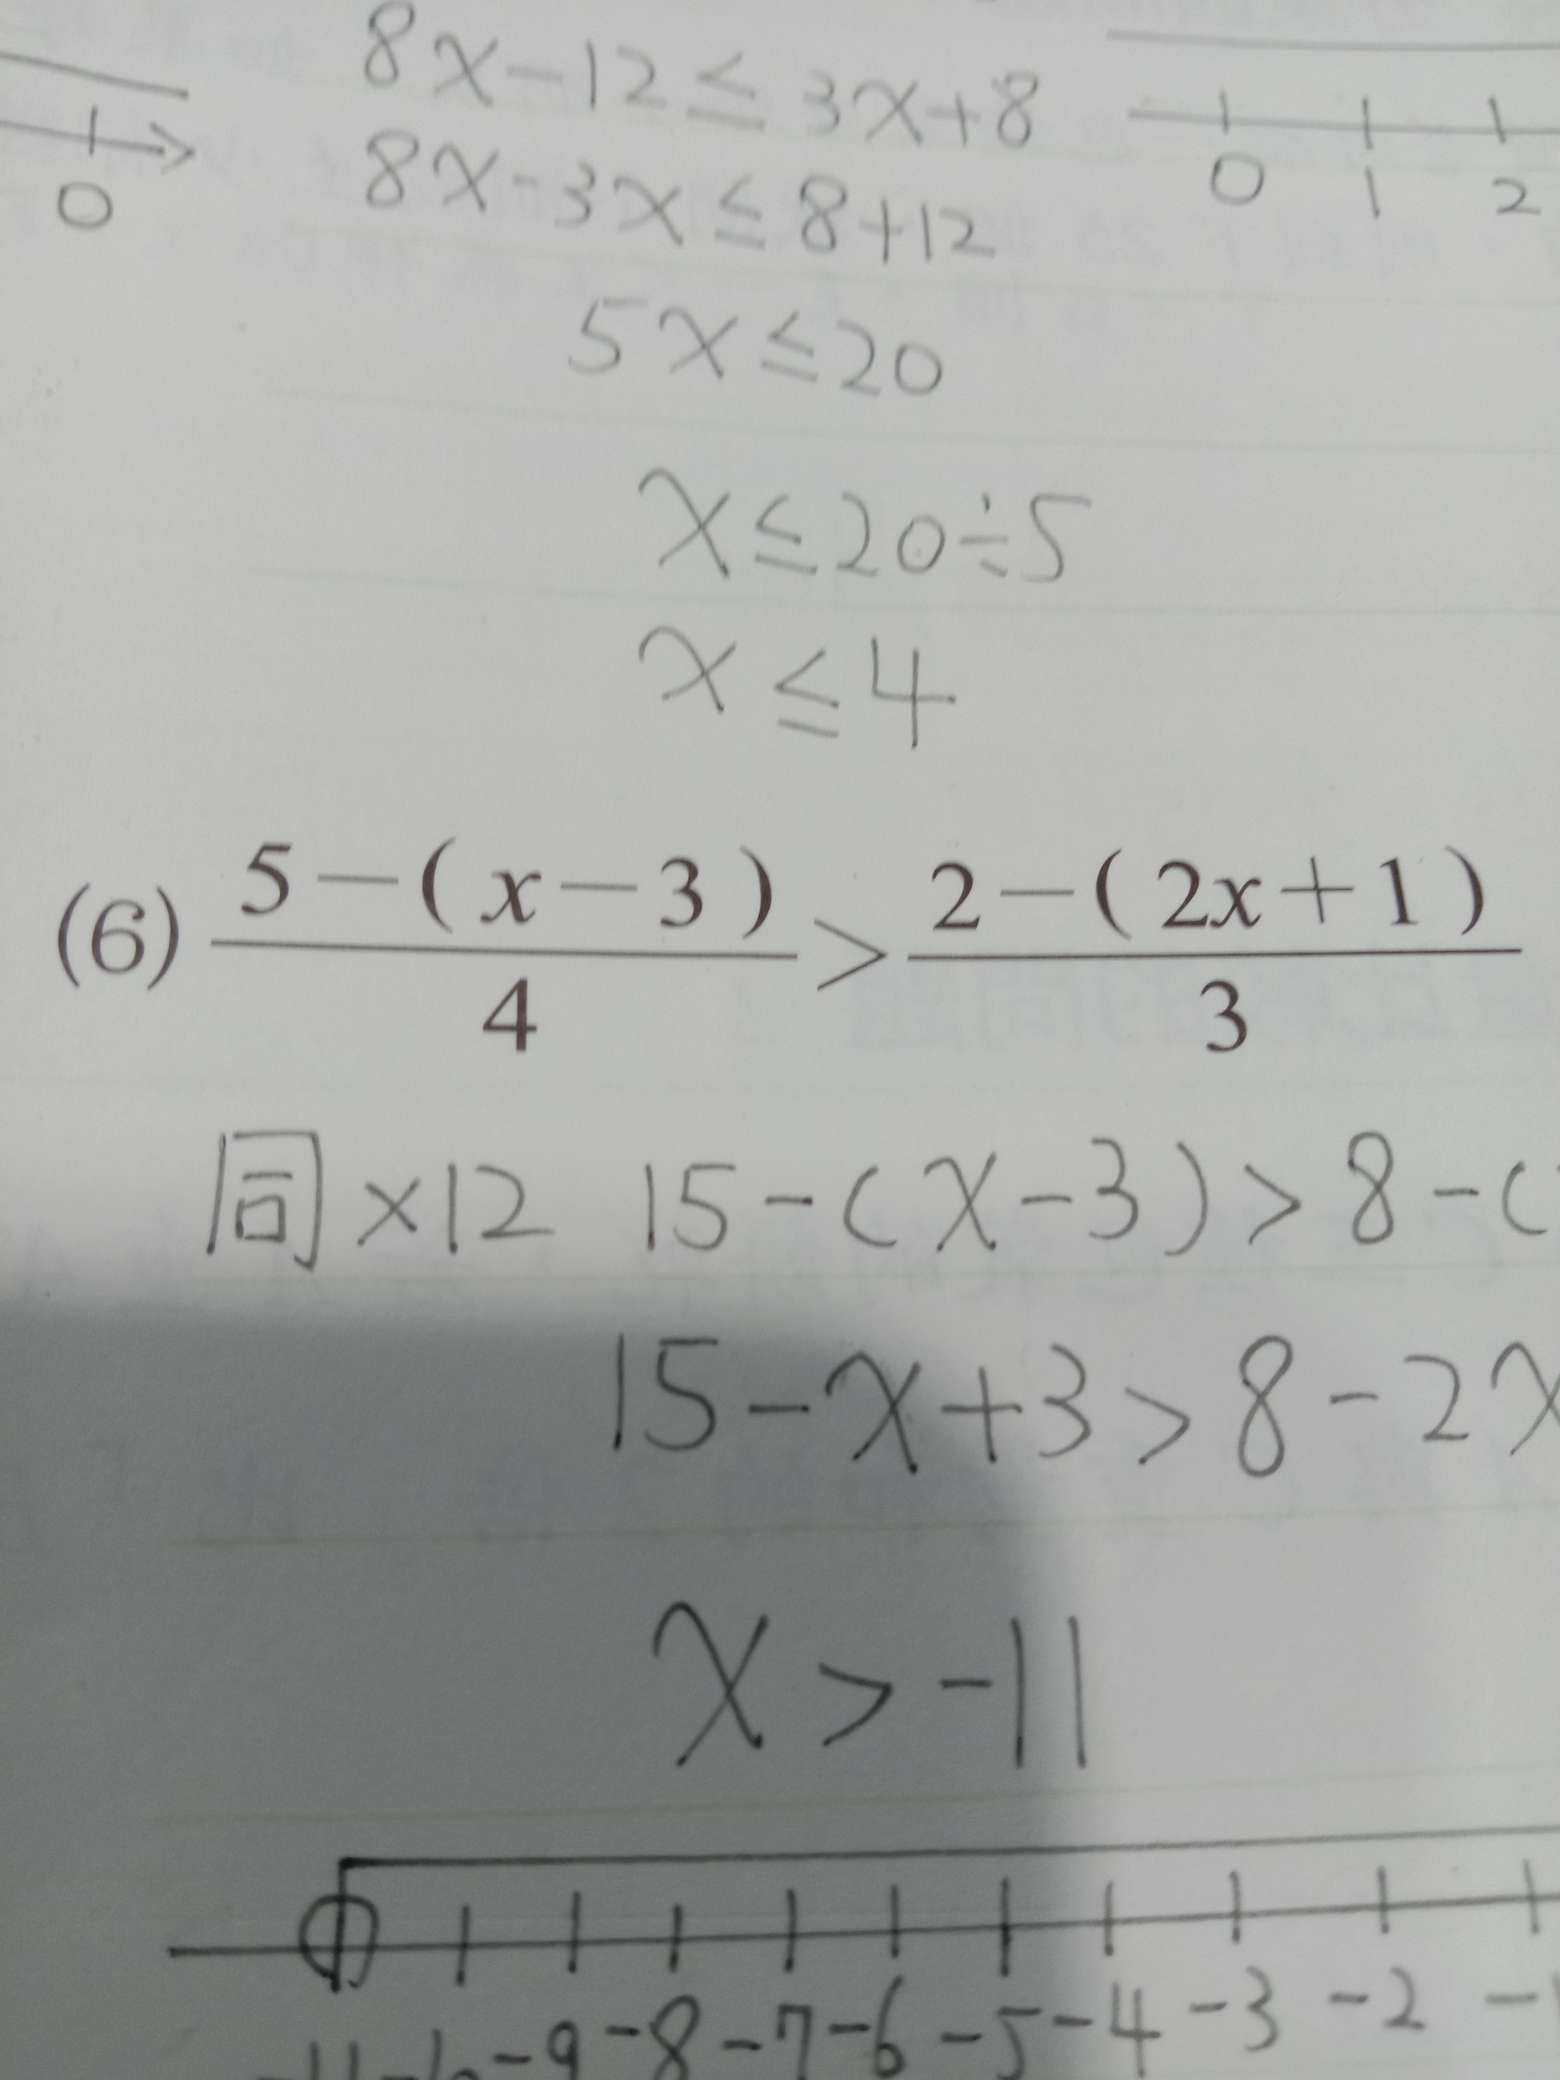 8x-12≦3x+8
8x-3x≦8+12
5x≦20
x≦20÷5
x≦4
0
0 1 2
(6) 5-(x-3)/4 > 2-(2x+1)/3
同×12 15-(x-3)>8-(
15-x+3>8-2x
x>-11
-9 -8 -7 -6 -5 -4 -3 -2